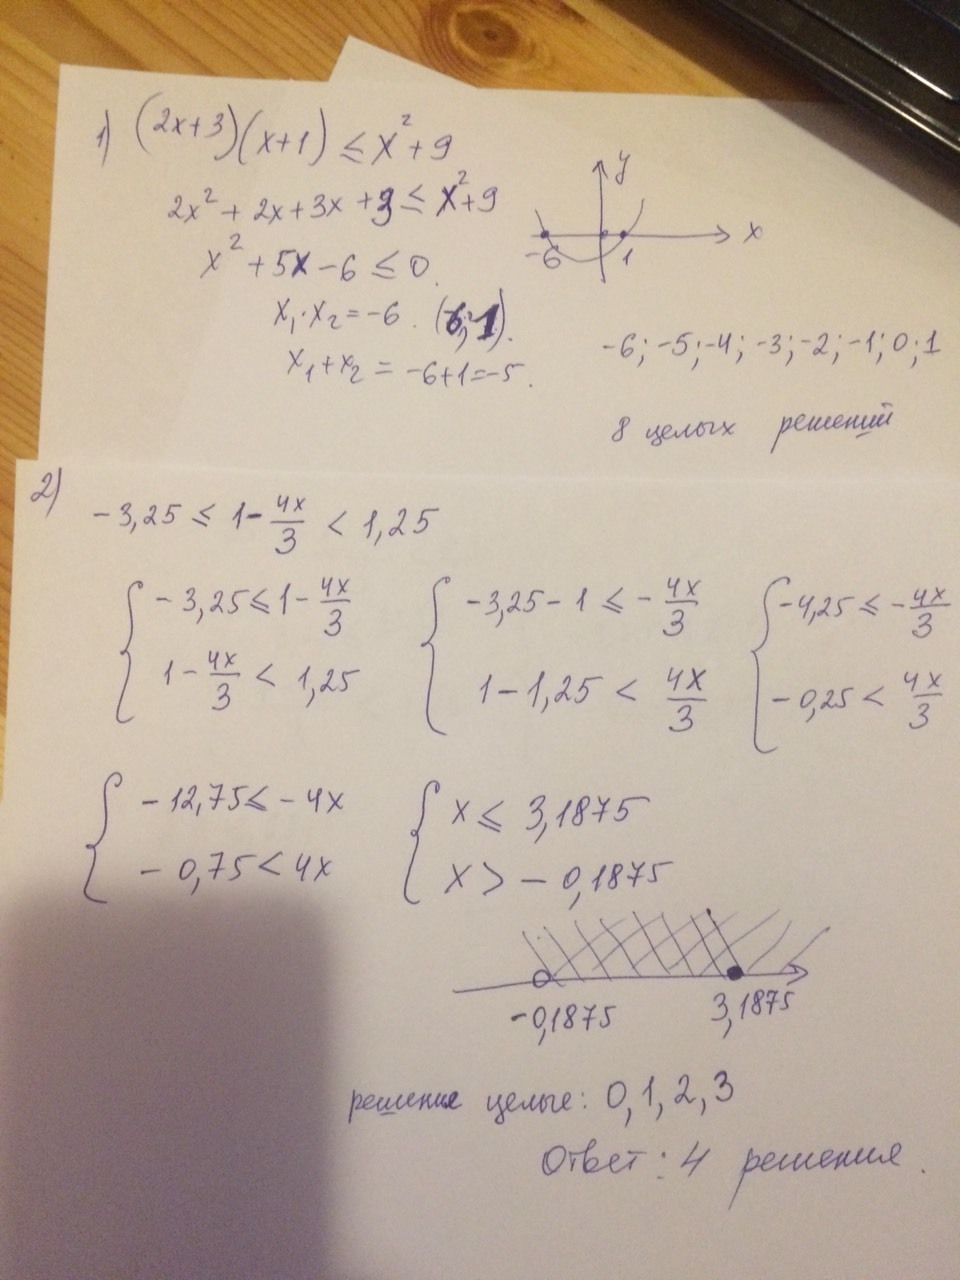 1) (2x+3)(x+1) ≤ x²+9
2x² + 2x + 3x + 3 ≤ x²+9
x² + 5x - 6 ≤ 0.
x₁·x₂ = -6. (-6; 1).
x₁+x₂ = -6+1=-5.
y
x
-6
1
-6; -5; -4; -3; -2; -1; 0; 1
8 целых решений
2)
-3,25 ≤ 1 - 4x/3 < 1,25
{ -3,25 ≤ 1 - 4x/3
1 - 4x/3 < 1,25
{ -3,25 - 1 ≤ - 4x/3
1 - 1,25 < 4x/3
{ -4,25 ≤ - 4x/3
- 0,25 < 4x/3
{ - 12,75 ≤ - 4x
- 0,75 < 4x
{ x ≤ 3,1875
x > - 0,1875
-0,1875
3,1875
решение целые: 0, 1, 2, 3
Ответ: 4 решения.